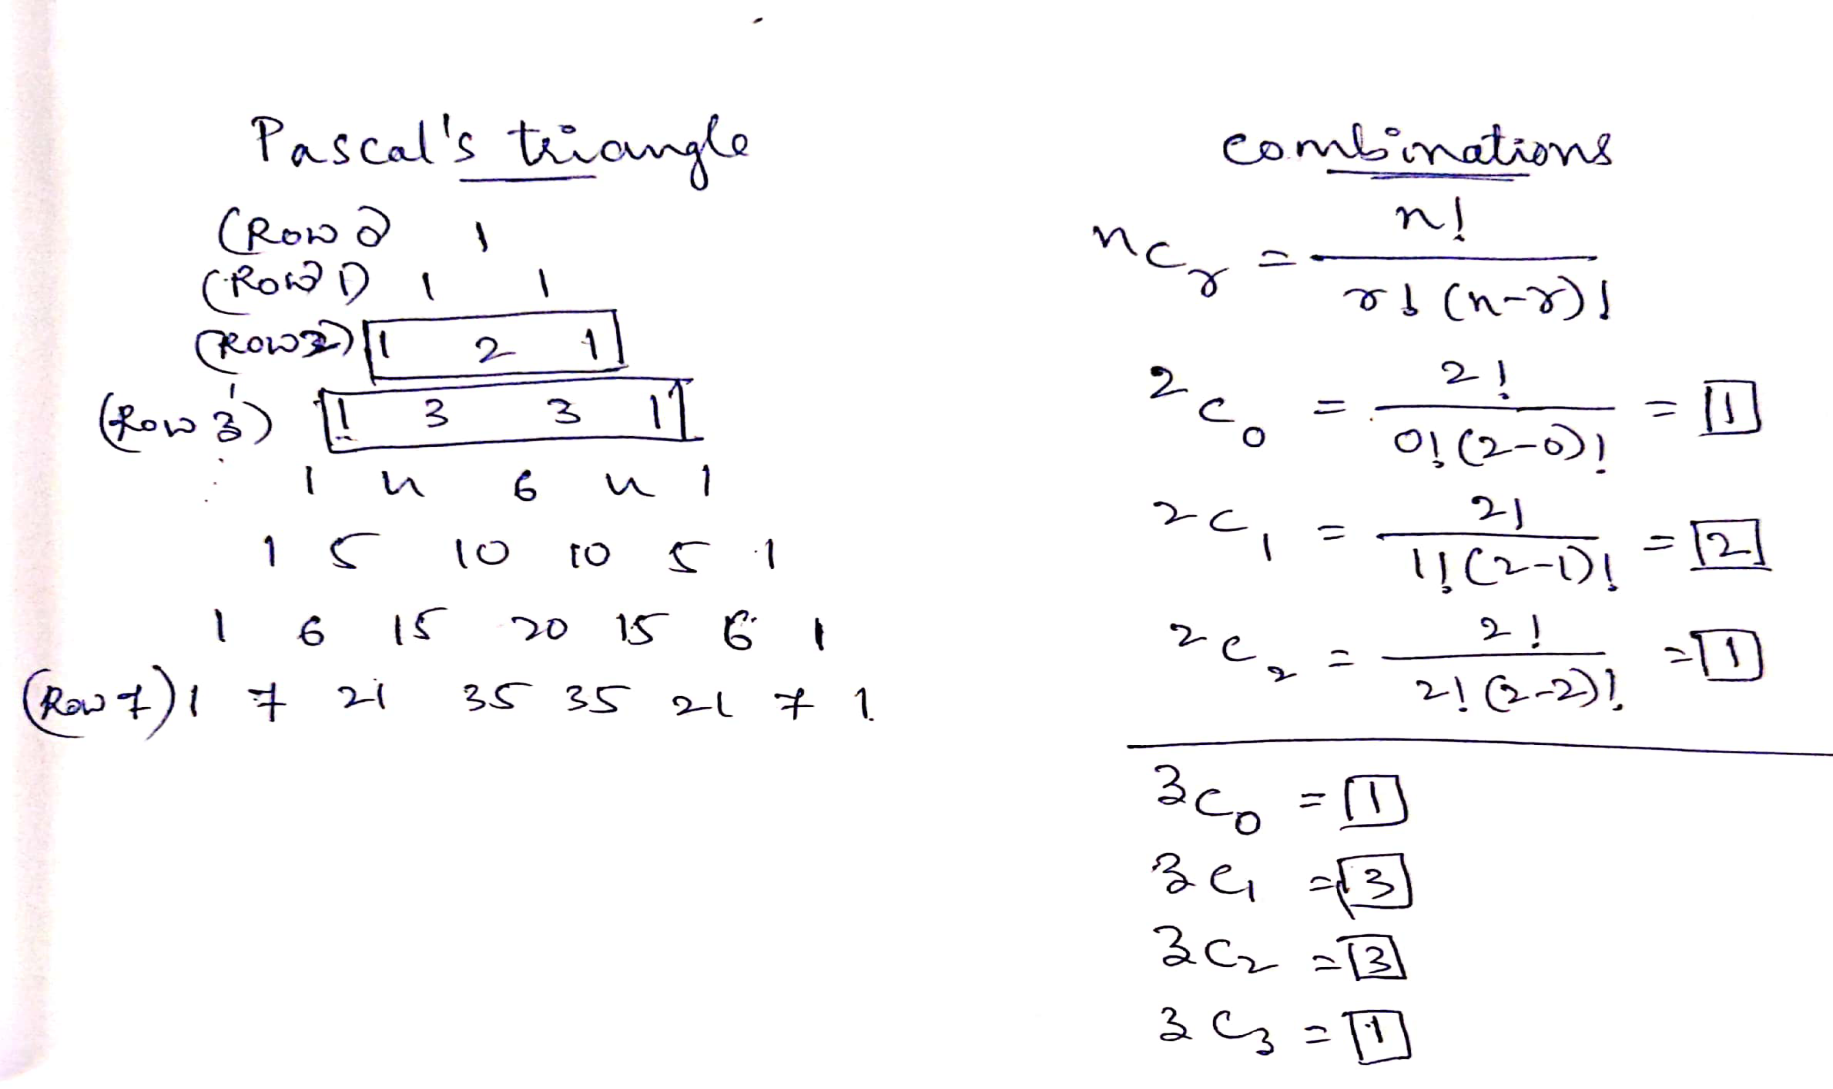 Pascal's triangle
(Row 0) 1
(Row 1) 1 1
(Row 2) 1 2 1
(Row 3) 1 3 3 1
1 4 6 4 1
1 5 10 10 5 1
1 6 15 20 15 6 1
(Row 7) 1 7 21 35 35 21 7 1
combinations
nCr = n! / r! (n-r)!
2C0 = 2! / 0! (2-0)! = 1
2C1 = 2! / 1! (2-1)! = 2
2C2 = 2! / 2! (2-2)! = 1
3C0 = 1
3C1 = 3
3C2 = 3
3C3 = 1